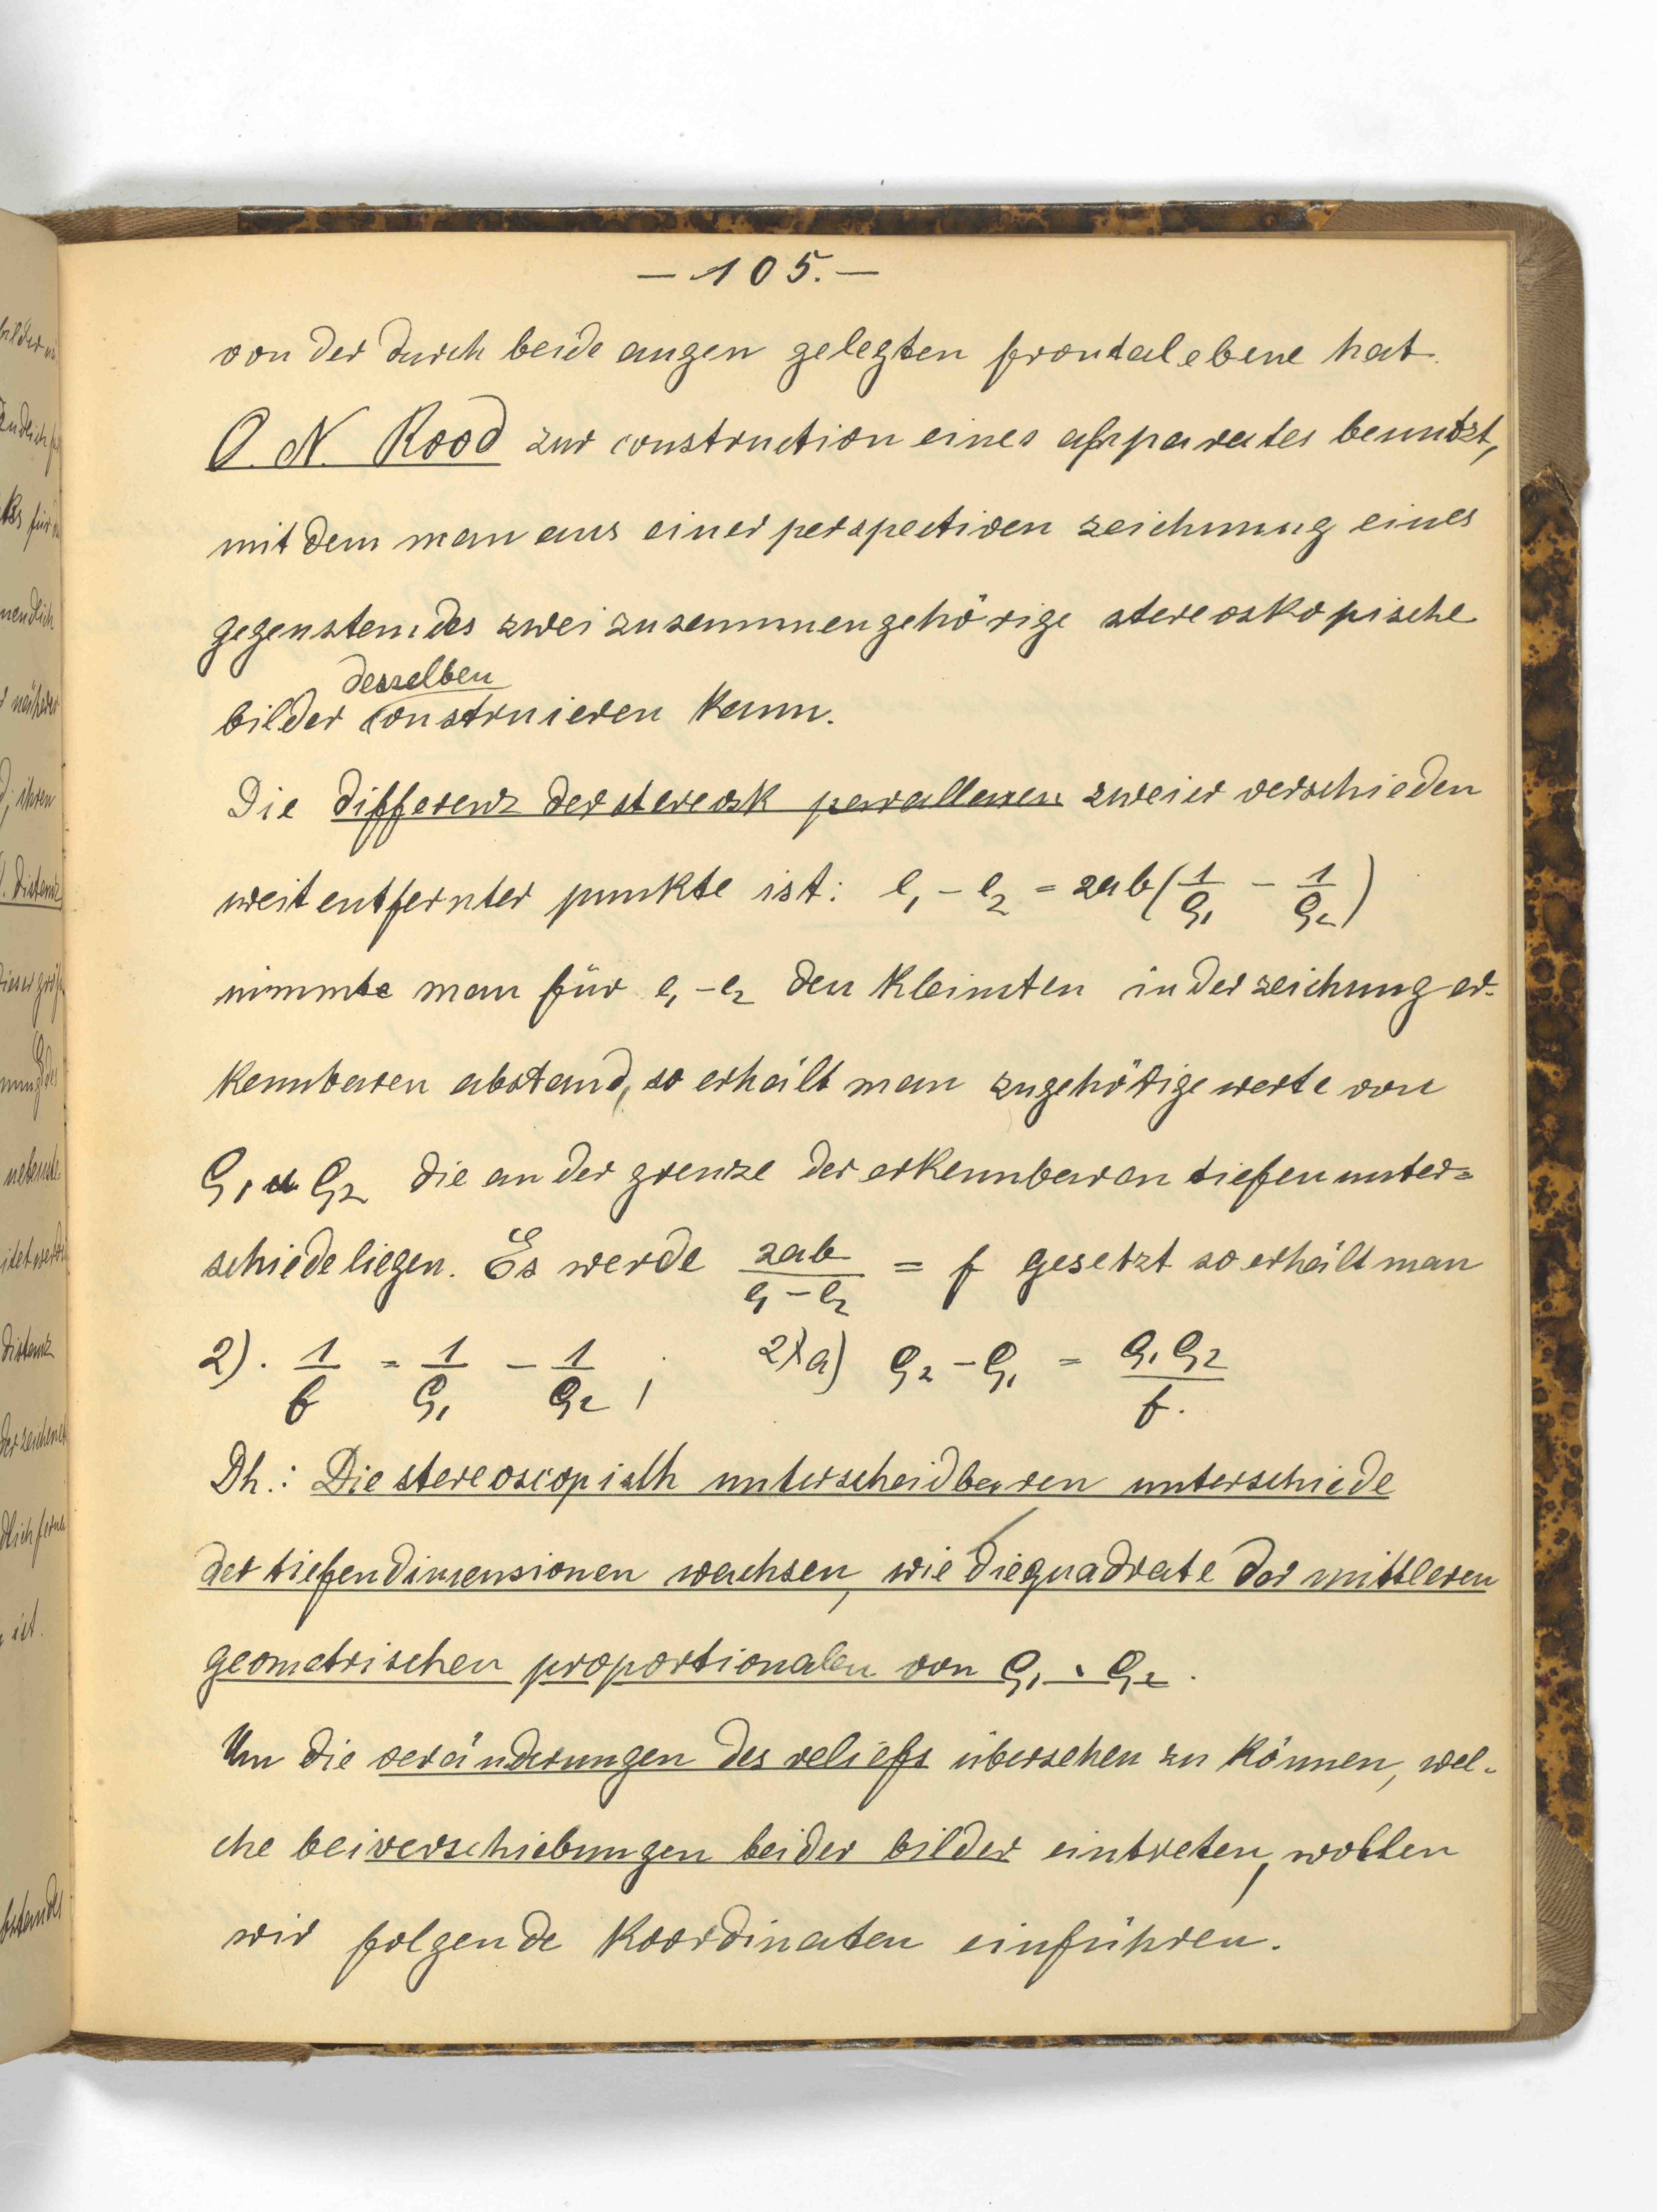 — 105. —
von der durch beide augen gelegten frontalebene hat.
O. N. Rood zur construction eines apparates benutzt,
mit dem man aus einer perspectiven zeichnung eines
gegenstandes zwei zusammengehörige stereoskopische
desselben
bilder construieren kann.
Die differenz der stereosk parallaxen zweier verschieden
weit entfernter punkte ist: e₁ – e₂ = 2ab(1/ρ₁ – 1/ρ₂)
nimmte man für e₁ – e₂ den kleinsten in der zeichung er-
kennbaren abstand, so erhält man zugehörige werte von
ρ₁ u ρ₂ die an der grenze der erkennbaren tiefenunter=
schiede liegen. Es werde 2ab/(e₁ – e₂) = f gesetzt so erhält man
2). 1/f = 1/ρ₁ – 1/ρ₂ ; 2) a) ρ₂ – ρ₁ = ρ₁ρ₂/f.
Dh.: Die stereoscopisch unterscheidbaren unterschiede
der tiefendimensionen wachsen, wie die quadrate der mittleren
geometrischen proportionalen von ρ₁ · ρ₂.
Um die veränderungen des reliefs übersehen zu können, wel-
che bei verschiebungen beider bilder eintreten, wollen
wir folgende Koordinaten einführen.